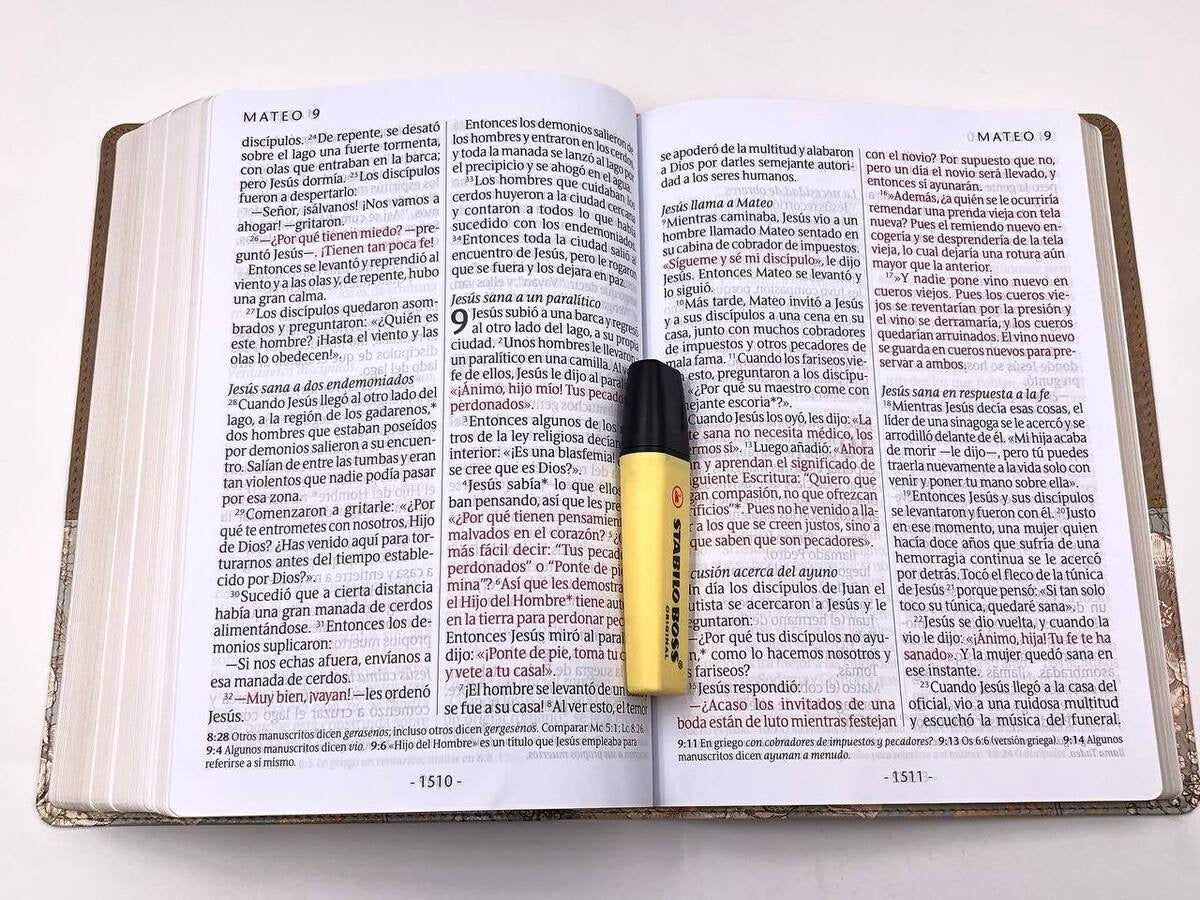 MATEO 9
discípulos. 24De repente, se desató
sobre el lago una fuerte tormenta,
con olas que entraban en la barca;
pero Jesús dormía. 25Los discípulos
fueron a despertarlo:
—Señor, ¡sálvanos! ¡Nos vamos a
ahogar! —gritaron.
26—¿Por qué tienen miedo? —pre-
guntó Jesús—. ¡Tienen tan poca fe!
Entonces se levantó y reprendió al
viento y a las olas y, de repente, hubo
una gran calma.
27Los discípulos quedaron asom-
brados y preguntaron: «¿Quién es
este hombre? ¡Hasta el viento y las
olas lo obedecen!».
Jesús sana a dos endemoniados
28Cuando Jesús llegó al otro lado del
lago, a la región de los gadarenos,*
dos hombres que estaban poseídos
por demonios salieron a su encuen-
tro. Salían de entre las tumbas y eran
tan violentos que nadie podía pasar
por esa zona.
29Comenzaron a gritarle: «¿Por
qué te entrometes con nosotros, Hijo
de Dios? ¿Has venido aquí para tor-
turarnos antes del tiempo estable-
cido por Dios?».
30Sucedió que a cierta distancia
había una gran manada de cerdos
alimentándose. 31Entonces los de-
monios suplicaron:
—Si nos echas afuera, envíanos a
esa manada de cerdos.
32—Muy bien, ¡vayan! —les ordenó
Jesús.
Entonces los demonios salieron de
los hombres y entraron en los cerdos,
y toda la manada se lanzó al lago por
el precipicio y se ahogó en el agua.
33Los hombres que cuidaban los
cerdos huyeron a la ciudad cercana
y contaron a todos lo que había
sucedido con los endemoniados.
34Entonces toda la ciudad salió al
encuentro de Jesús, pero le rogaron
que se fuera y los dejara en paz.
Jesús sana a un paralítico
9 Jesús subió a una barca y regresó
al otro lado del lago, a su propia
ciudad. 2Unos hombres le llevaron
un paralítico en una camilla. Al
fe de ellos, Jesús le dijo al paralí
«¡Ánimo, hijo mío! Tus pecad
perdonados».
3Entonces algunos de los
tros de la ley religiosa decían
interior: «¡Es una blasfemia!
se cree que es Dios?».
4Jesús sabía* lo que ellos
ban pensando, así que les pre
«¿Por qué tienen pensamien
malvados en el corazón? 5
más fácil decir: “Tus pecad
perdonados” o “Ponte de pie
mina”? 6Así que les demostra
el Hijo del Hombre* tiene aut
en la tierra para perdonar pe
Entonces Jesús miró al paral
dijo: «¡Ponte de pie, toma tu c
y vete a tu casa!».
7¡El hombre se levantó de un
se fue a su casa! 8Al ver esto, el temor
8:28 Otros manuscritos dicen gerasenos; incluso otros dicen gergesenos. Comparar Mc 5:1; Lc 8:26.
9:4 Algunos manuscritos dicen vio. 9:6 «Hijo del Hombre» es un título que Jesús empleaba para
referirse a sí mismo.
- 1510 -
MATEO 9
se apoderó de la multitud y alabaron
a Dios por darles semejante autori-
dad a los seres humanos.
Jesús llama a Mateo
9Mientras caminaba, Jesús vio a un
hombre llamado Mateo sentado en
su cabina de cobrador de impuestos.
«Sígueme y sé mi discípulo», le dijo
Jesús. Entonces Mateo se levantó y
lo siguió.
10Más tarde, Mateo invitó a Jesús
y a sus discípulos a una cena en su
casa, junto con muchos cobradores
de impuestos y otros pecadores de
mala fama. 11Cuando los fariseos vie-
esto, preguntaron a los discípu-
«¿Por qué su maestro come con
mejante escoria*?».
Cuando Jesús los oyó, les dijo: «La
te sana no necesita médico, los
ermos sí». 13Luego añadió: «Ahora
n y aprendan el significado de
iguiente Escritura: “Quiero que
gan compasión, no que ofrezcan
ificios”*. Pues no he venido a lla-
r a los que se creen justos, sino a
que saben que son pecadores».
cusión acerca del ayuno
n día los discípulos de Juan el
utista se acercaron a Jesús y le
eguntaron:
—¿Por qué tus discípulos no ayu-
n,* como lo hacemos nosotros y
s fariseos?
15Jesús respondió:
—¿Acaso los invitados de una
boda están de luto mientras festejan
con el novio? Por supuesto que no,
pero un día el novio será llevado, y
entonces sí ayunarán.
16»Además, ¿a quién se le ocurriría
remendar una prenda vieja con tela
nueva? Pues el remiendo nuevo en-
cogería y se desprendería de la tela
vieja, lo cual dejaría una rotura aún
mayor que la anterior.
17»Y nadie pone vino nuevo en
cueros viejos. Pues los cueros vie-
jos se reventarían por la presión y
el vino se derramaría, y los cueros
quedarían arruinados. El vino nuevo
se guarda en cueros nuevos para pre-
servar a ambos.
Jesús sana en respuesta a la fe
18Mientras Jesús decía esas cosas, el
líder de una sinagoga se le acercó y se
arrodilló delante de él. «Mi hija acaba
de morir —le dijo—, pero tú puedes
traerla nuevamente a la vida solo con
venir y poner tu mano sobre ella».
19Entonces Jesús y sus discípulos
se levantaron y fueron con él. 20Justo
en ese momento, una mujer quien
hacía doce años que sufría de una
hemorragia continua se le acercó
por detrás. Tocó el fleco de la túnica
de Jesús 21porque pensó: «Si tan solo
toco su túnica, quedaré sana».
22Jesús se dio vuelta, y cuando la
vio le dijo: «¡Ánimo, hija! Tu fe te ha
sanado». Y la mujer quedó sana en
ese instante.
23Cuando Jesús llegó a la casa del
oficial, vio a una ruidosa multitud
y escuchó la música del funeral.
9:11 En griego con cobradores de impuestos y pecadores? 9:13 Os 6:6 (versión griega). 9:14 Algunos
manuscritos dicen ayunan a menudo.
- 1511 -
STABILO BOSS®
ORIGINAL